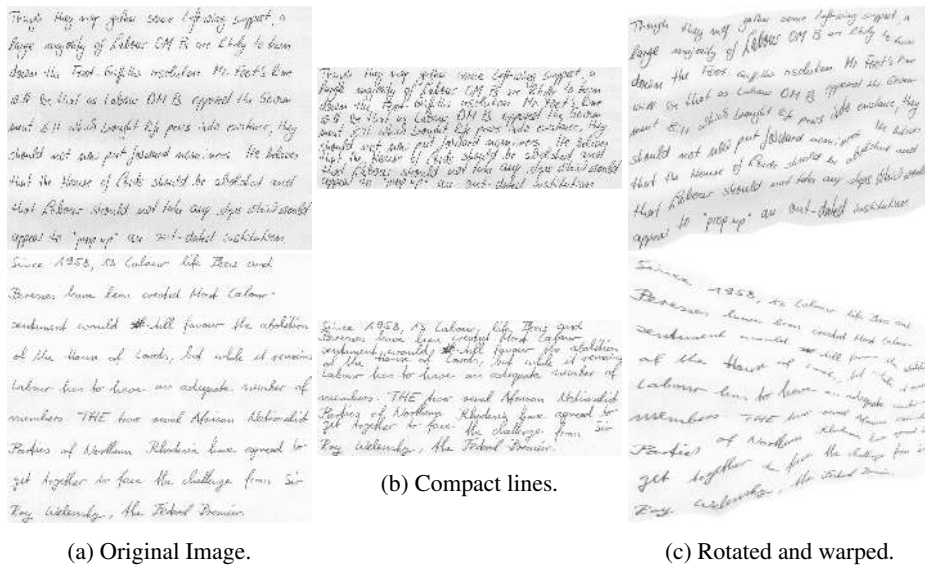 Though they may gather some left-wing support, a
large majority of Labour OM Ps are likely to turn
down the Foot-Griffiths resolution. Mr. Foot's line
will be that as Labour OM Ps opposed the Govern
ment Bill which brought life peers into existence, they
should not now put forward nominees. He believes
that the House of Lords should be abolished and
that Labour should not take any steps which would
appear to "prop up" an out-dated institution.
Since 1958, 13 Labour life Peers and
Peresses have been created Most Labour
sentiment would still favour the abolition
of the House of Lords, but while it remains
Labour has to have an adequate number of
members. THE two rival African Nationalist
Parties of Northern Rhodesia have agreed to
get together to face the challenge from Sir
Roy Welensky, the Federal Premier.
(a) Original Image.
Though they may gather some left-wing support, a
large majority of Labour OM Ps are likely to turn
down the Foot-Griffiths resolution. Mr. Foot's line
will be that as Labour OM Ps opposed the Govern
ment Bill which brought life peers into existence, they
should not now put forward nominees. He believes
that the House of Lords should be abolished and
appear to "prop up" an out-dated institution.
Since 1958, 13 Labour life Peers and
Peresses have been created Most Labour
sentiment would still favour the abolition
of the House of Lords, but while it remains
Labour has to have an adequate number of
members. THE two rival African Nationalist
Parties of Northern Rhodesia have agreed to
get together to face the challenge from Sir
Roy Welensky, the Federal Premier.
(b) Compact lines.
Though they may gather some left-wing support, a
large majority of Labour OM Ps are likely to turn
down the Foot-Griffiths resolution. Mr. Foot's line
will be that as Labour OM Ps opposed the Govern
ment Bill which brought life peers into existence, they
should not now put forward nominees. He believes
that the House of Lords should be abolished and
that Labour should not take any steps which would
appear to "prop up" an out-dated institution.
Since 1958, 13 Labour life Peers and
Peresses have been created Most Labour
sentiment would still favour the abolition
of the House of Lords, but while it
Labour has to have an adequate number
members. THE two rival African
Parties of Northern Rhodesia have agreed
get together to face the challenge from
Roy Welensky, the Federal Premier.
(c) Rotated and warped.